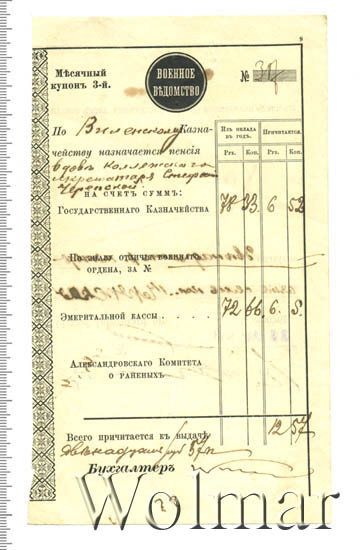 9
Мѣсячный купонъ 3-й.
ВОЕННОЕ ВѢДОМСТВО
№ 37
Изъ оклада въ годъ. Причитается.
Руб. Коп. Руб. Коп.
По Виленскому Казна-
чейству назначается пенсія
вдовѣ коллежскаго
секретаря Стефаніи
НА СЧЕТЪ СУММЪ:
Государственнаго Казначейства 78 33 6 52
По знаку отличія военнаго
ордена, за №
Эмеритальной кассы 72 66 6 5
Александровскаго Комитета
о раненыхъ
12 57
Всего причитается къ выдачѣ
двѣнадцать руб 57 к
Бухгалтеръ
Wolmar